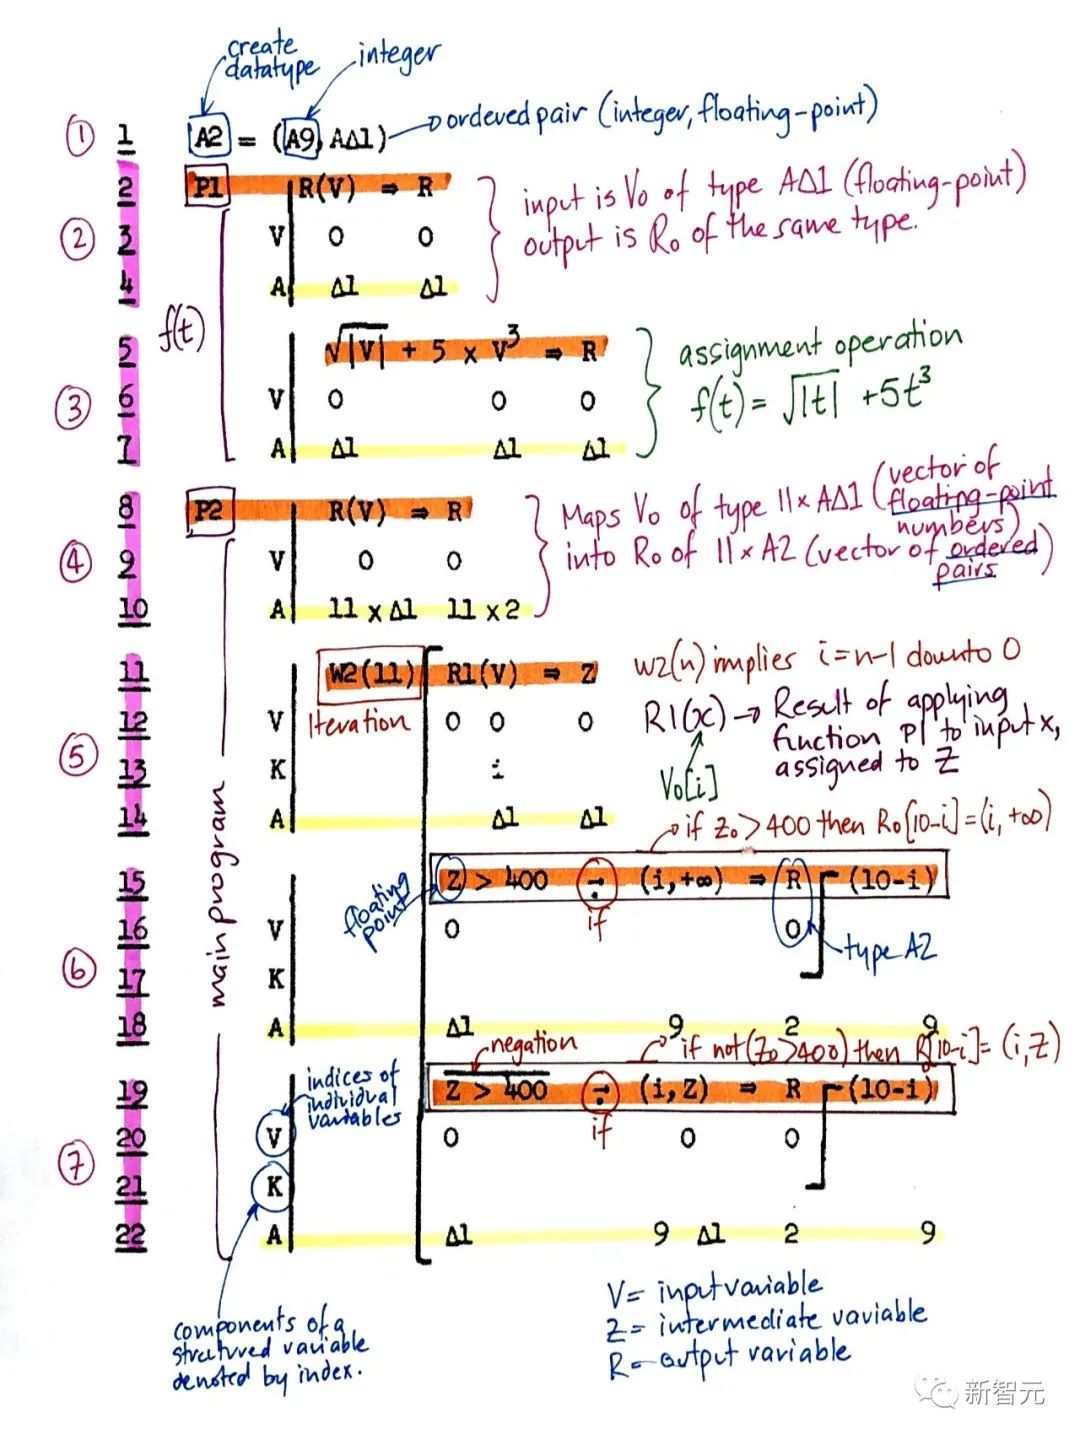 create
datatype
integer
① 1 A2 = (A9, AΔ1) ordered pair (integer, floating-point)
2 P1 R(V) ⇒ R
input is V₀ of type AΔ1 (floating-point)
② 3 V 0 0
output is R₀ of the same type.
4 A Δ1 Δ1
f(t)
5 √|V| + 5 × V³ ⇒ R
assignment operation
③ 6 V 0 0 0
f(t) = √|t| + 5t³
7 A Δ1 Δ1 Δ1
8 P2 R(V) ⇒ R
Maps V₀ of type 11×AΔ1 (vector of
floating-point
numbers)
④ 9 V 0 0
into R₀ of 11×A2 (vector of ordered
pairs)
10 A 11 × Δ1 11 × 2
main program
11 W2(11) R1(V) ⇒ Z
w2(n) implies i=n-1 downto 0
Iteration
12 V 0 0 0
R1(x) → Result of applying
function P1 to input x,
assigned to Z
⑤ 13 K i
V₀[i]
14 A Δ1 Δ1
if Z₀>400 then R₀[10-i]=(i,+∞)
15 Z > 400 ⇁ (i,+∞) ⇒ R (10-i)
floating
point
if
16 V 0 0
type A2
⑥ 17 K
18 A Δ1 9 2 9
negation
if not(Z₀>400) then R[10-i]= (i,Z)
19 Z > 400 ⇁ (i,Z) ⇒ R (10-i)
indices of
individual
variables
if
20 V 0 0 0
⑦ 21 K
22 A Δ1 9 Δ1 2 9
components of a
structured variable
denoted by index.
V= input variable
Z= intermediate variable
R= output variable
新智元